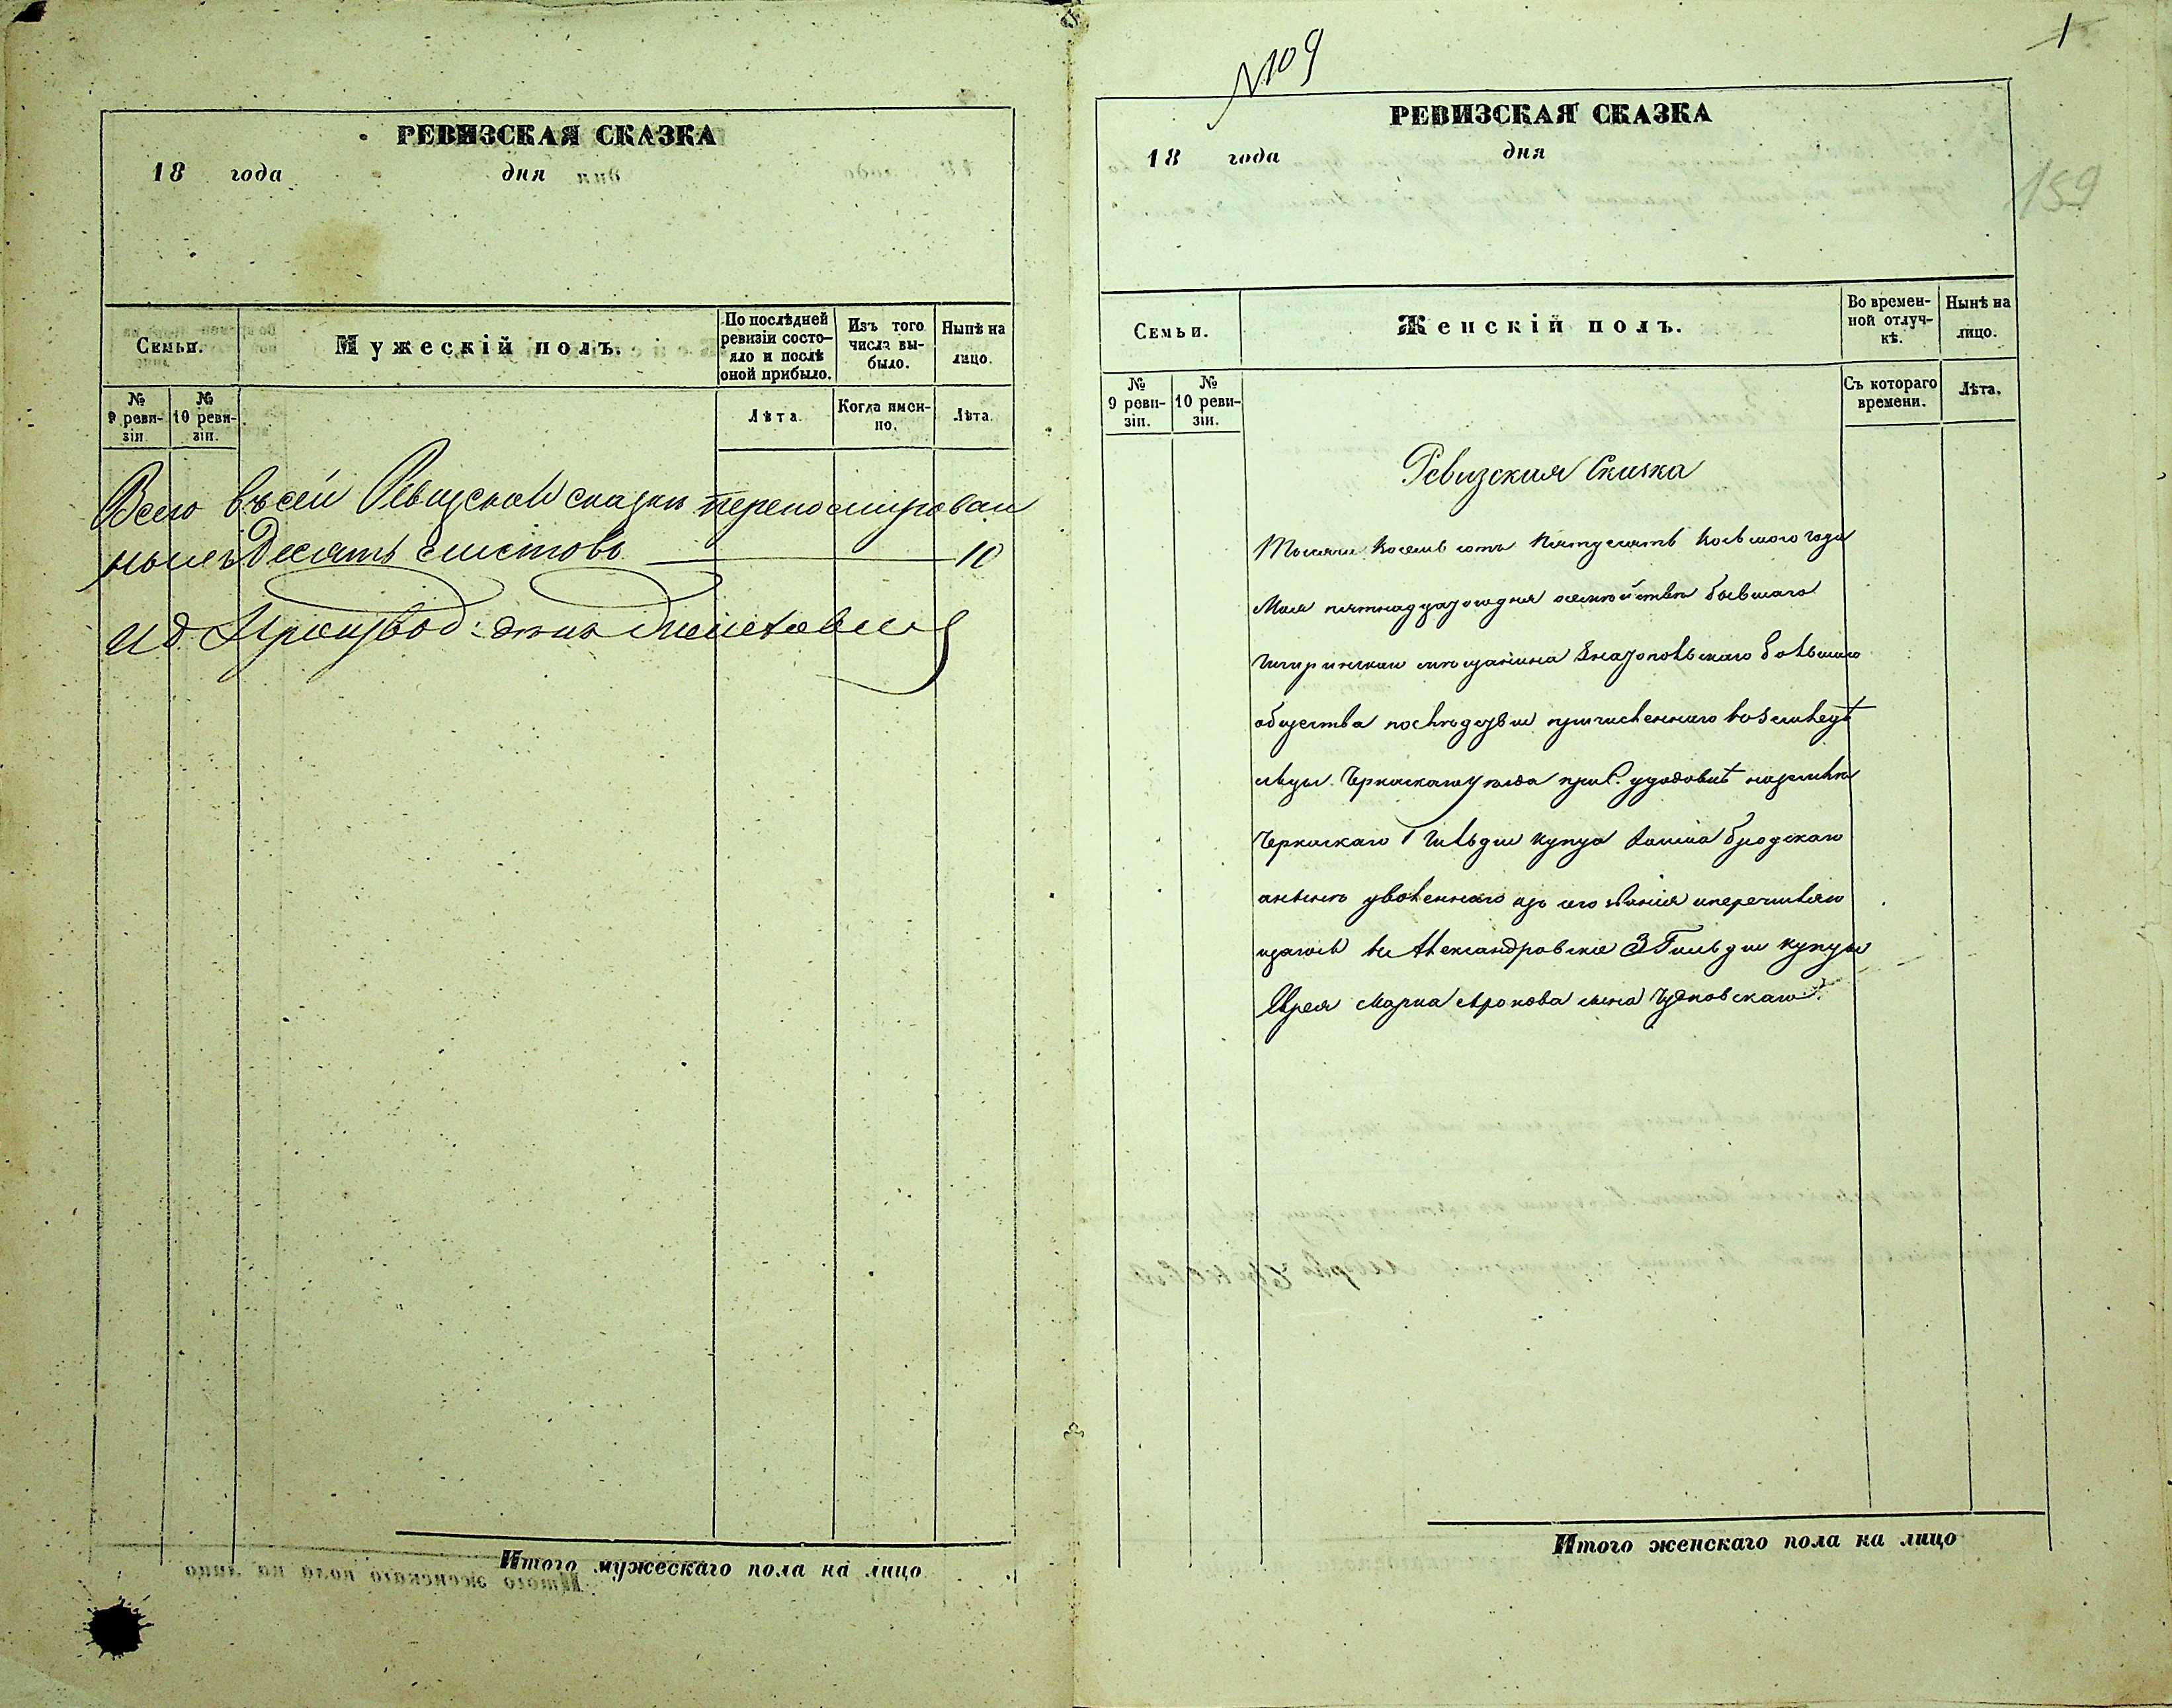 РЕВИЗСКАЯ СКАЗКА
18 года дня
Семьи.
Мужескій полъ.
По послѣдней ревизіи состояло и послѣ оной прибыло.
Изъ того числа выбыло.
Нынѣ на лицо.
№ 9 ревизіи.
№ 10 ревизіи.
Лѣта.
Когда именно.
Лѣта.
Всего въ сей Ревизской сказки
ныхъ Десять листовъ 10
И д. Производ:
Итого мужескаго пола на лицо
№109
1
159
РЕВИЗСКАЯ СКАЗКА
18 года дня
Семьи.
Женскій полъ.
Во временной отлучкѣ.
Нынѣ на лицо.
№ 9 ревизіи.
№ 10 ревизіи.
Съ котораго времени.
Лѣта.
Ревизская Сказка
Тысяча восемь сотъ пятдесятъ восьмого года
Мая пятнадцатого дня о семействѣ бывшаго
мѣщанина Златопольскаго бывшаго
общества причисленнаго
Черкаскаго уѣзда при С.
Черкаскаго 1 Гильдіи купца Бродскаго
уволеннаго изъ его званія и перечисляю
щагося въ Александровскіе 3 Гильдіи купцы
Еврея Марка Аронова сына Чудновскаго.
Итого женскаго пола на лицо